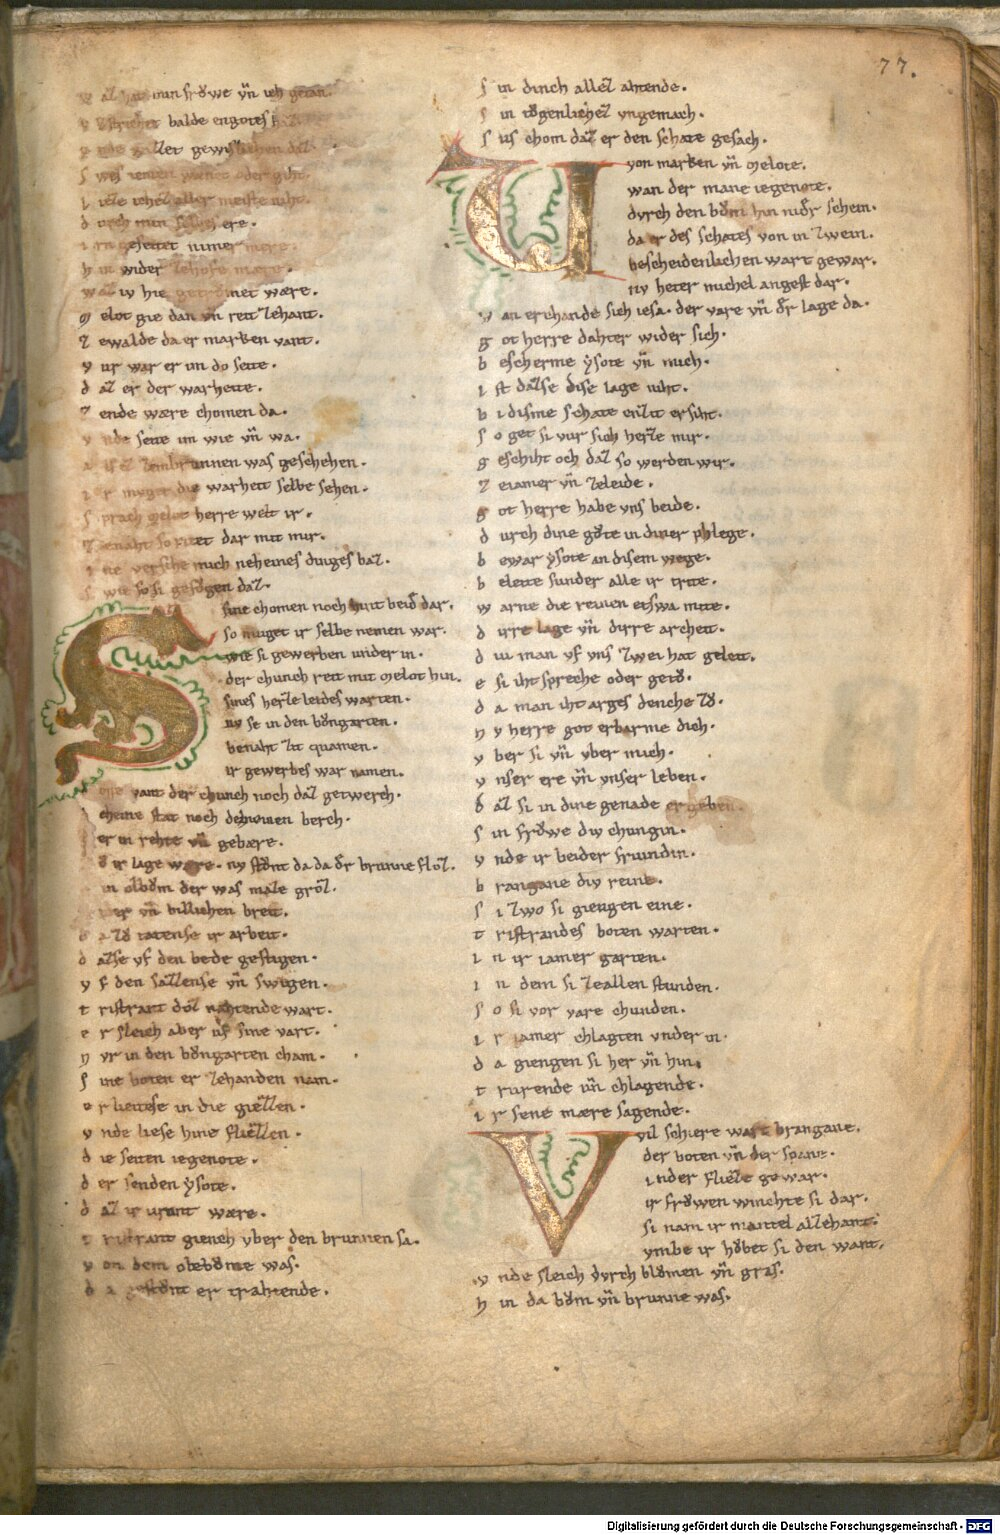 77.
min frowe vñ ich getan.
balde engotes
gewislichen daz
s wes iemen wænet oder giht.
i uch aller meiste niht.
d urch min selbes ere.
i rn gesettet nimer mere.
h in wider ze hofe mære.
w az iv hie getrovmet wære.
M elot gie dan vñ reit zehant.
z ewalde da er marken vant.
v ur war er im do seite.
d az er der warheite.
z ende wære chomen da.
v nde seite im wie vñ wa.
zem brunnen was geschehen.
i r muget die warheit selbe sehen.
s prach Melot herre welt ir.
z enaht so ritet dar mit mir.
i ne versihe mich neheines dinges baz.
s wie so si gefvͦgen daz.
S sine chomen noch hint beidͤ dar.
so muget ir selbe nemen war.
wie si gewerben under in.
der chunch reit mit Melot hin.
sines herze leides warten.
nv se in den bovngarten.
benaht zit quamen.
ir gewerbes war namen.
vant der chunch noch daz getwerch.
cheine stat noch deheinen berch.
er in rehte vñ gebære.
ir lage wære. nv stvͦnt da da dͤr brunne floz.
in olbovm der was maze groz.
er vñ billichen breit.
d a zvͦ tatense ir arbeit.
d azse vf den bede gestigen.
v f den sazzense vñ swigen.
t ristrant doz nahtende wart.
e r sleich aber vf sine vart.
n vr in den bovngarten cham.
s ine boten er zehanden nam.
e r leitese in die giezzen.
v nde liese hine fliezzen.
d ie seiten iegenote.
d er senden ysote.
d az ir vrunt wære.
t ristrant giench vber den brunnen sa.
v on dem olebovme was.
d a gestvͦnt er trahtende.
s in dinch allez ahtende.
s in tovgenlichez vngemach.
s us chom daz er den schate gesach.
V von marken vñ Melote.
wan der mane iegenote.
dvrch den bovm hin nidͤr schein.
da er des schates von in zwein.
bescheidenlichen wart gewar.
nv heter michel angest dar.
w an erchande sich iesa. der vare vñ dͤr lage da.
g ot herre dahter wider sich.
b escherme ysote vñ mich.
i st dazse dise lage niht.
b i disme schate enzit ersiht.
s o get si vur sich herze mir.
g eschiht och daz so werden wir.
z eiamer vñ zeleide.
g ot herre habe vns beide.
d urch dine gvͦte in diner phlege.
b ewar ysote an disem wege.
b eleite sunder alle ir trite.
w arne die reinen etswa mite.
d irre lage vñ dirre archeit.
d iu man vf vns zwei hat geleit.
e si iht spreche oder getvͦ.
d a man iht arges denche zvͦ.
n v herre got erbarme dich.
v ber si vñ vber mich.
v nser ere vñ vnser leben.
d az si in dine genade ergeben.
s in frowe div chungin.
v nde ir beider friundin.
b rangane div reine.
s i zwo si giengen eine.
t ristrandes boten warten.
i n ir iamer garten.
i n dem si zeallen stunden.
s o si vor vare chunden.
i r iamer chlagten vnder in.
d a giengen si her vñ hin.
t rurende vñ chlagende.
i r sene mære sagende.
V vil schiere wart brangane.
der boten vñ der spane.
inder flieze gewar.
ir frowen winchte si dar.
si nam ir mantel allehant.
vmbe ir hovbet si den want.
v nde sleich dvrch blvͦmen vñ gras.
h in da bovm vñ brunne was.
Digitalisierung gefördert durch die Deutsche Forschungsgemeinschaft - DFG